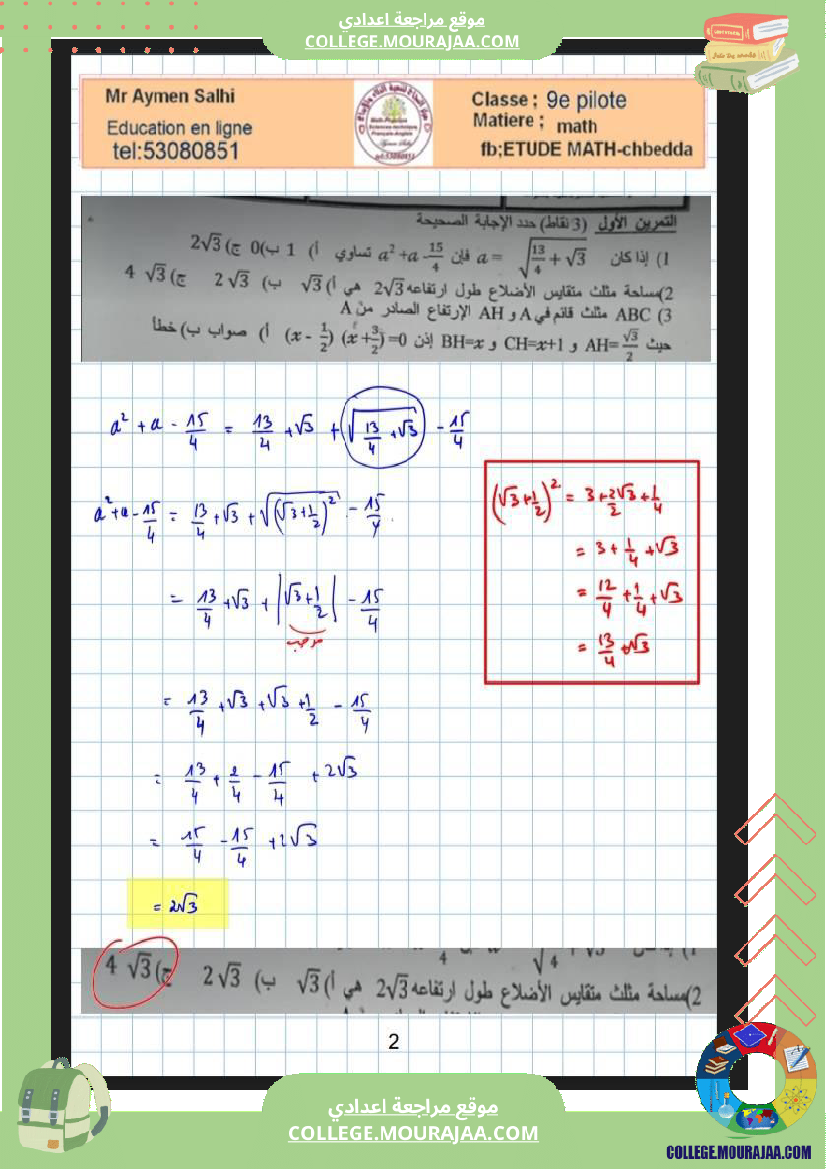 موقع مراجعة اعدادي
COLLEGE.MOURAJAA.COM
Mr Aymen Salhi
Education en ligne
tel:53080851
Classe ; 9e pilote
Matiere ; math
fb;ETUDE MATH-chbedda
التمرين الأول (3 نقاط) حدد الإجابة الصحيحة
1) إذا كان a = √(13/4 + √3) فإن a² + a - 15/4 تساوي أ) 1 ب) 0 ج) 2√3
2) مساحة مثلث متقايس الأضلاع طول ارتفاعه 2√3 هي أ) √3 ب) 2√3 ج) 4√3
3) ABC مثلث قائم في A و AH الإرتفاع الصادر من A
حيث AH=√3/2 و CH=x+1 و BH=x إذن (x - 1/2)(x + 3/2)=0 أ) صواب ب) خطأ
a² + a - 15/4 = 13/4 + √3 + √(13/4 + √3) - 15/4
a² + a - 15/4 = 13/4 + √3 + √((√3 + 1/2)²) - 15/4
= 13/4 + √3 + |√3 + 1/2| - 15/4
موجب
= 13/4 + √3 + √3 + 1/2 - 15/4
= 13/4 + 2/4 - 15/4 + 2√3
= 15/4 - 15/4 + 2√3
= 2√3
(√3 + 1/2)² = 3 + 2√3/2 + 1/4
= 3 + 1/4 + √3
= 12/4 + 1/4 + √3
= 13/4 + √3
2) مساحة مثلث متقايس الأضلاع طول ارتفاعه 2√3 هي أ) √3 ب) 2√3 ج) 4√3
2
موقع مراجعة اعدادي
COLLEGE.MOURAJAA.COM
COLLEGE.MOURAJAA.COM